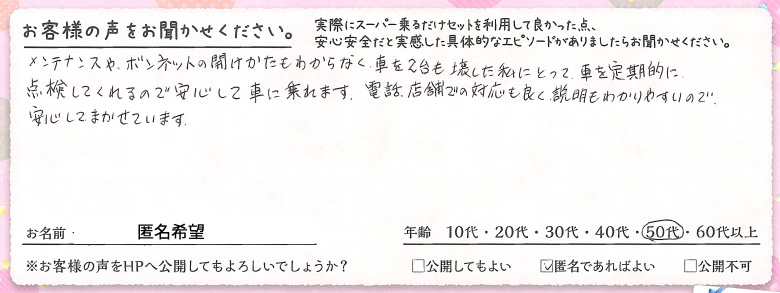 お客様の声をお聞かせください。
実際にスーパー乗るだけセットを利用して良かった点、
安心安全だと実感した具体的なエピソードがありましたらお聞かせください。
メンテナンスや、ボンネットの開けかたもわからなく、車を2台も壊した私にとって、車を定期的に
点検してくれるので安心して車に乗れます。電話、店舗での対応も良く、説明もわかりやすいので、
安心してまかせています。
お名前・ 匿名希望
年齢 10代・20代・30代・40代・50代・60代以上
※お客様の声をHPへ公開してもよろしいでしょうか? □公開してもよい ☑匿名であればよい □公開不可